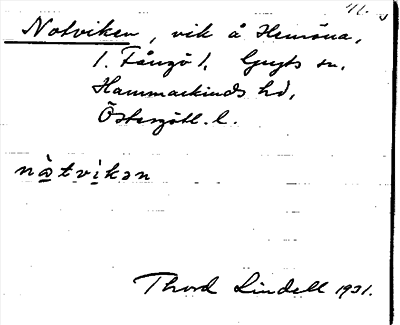 Notviken, vik å Hemöna,
1. Fångö 1, Gryts sn,
Hammarkinds hd,
Östergötl. l.
nò̱tvi̱kən
Thord Lindell 1931.